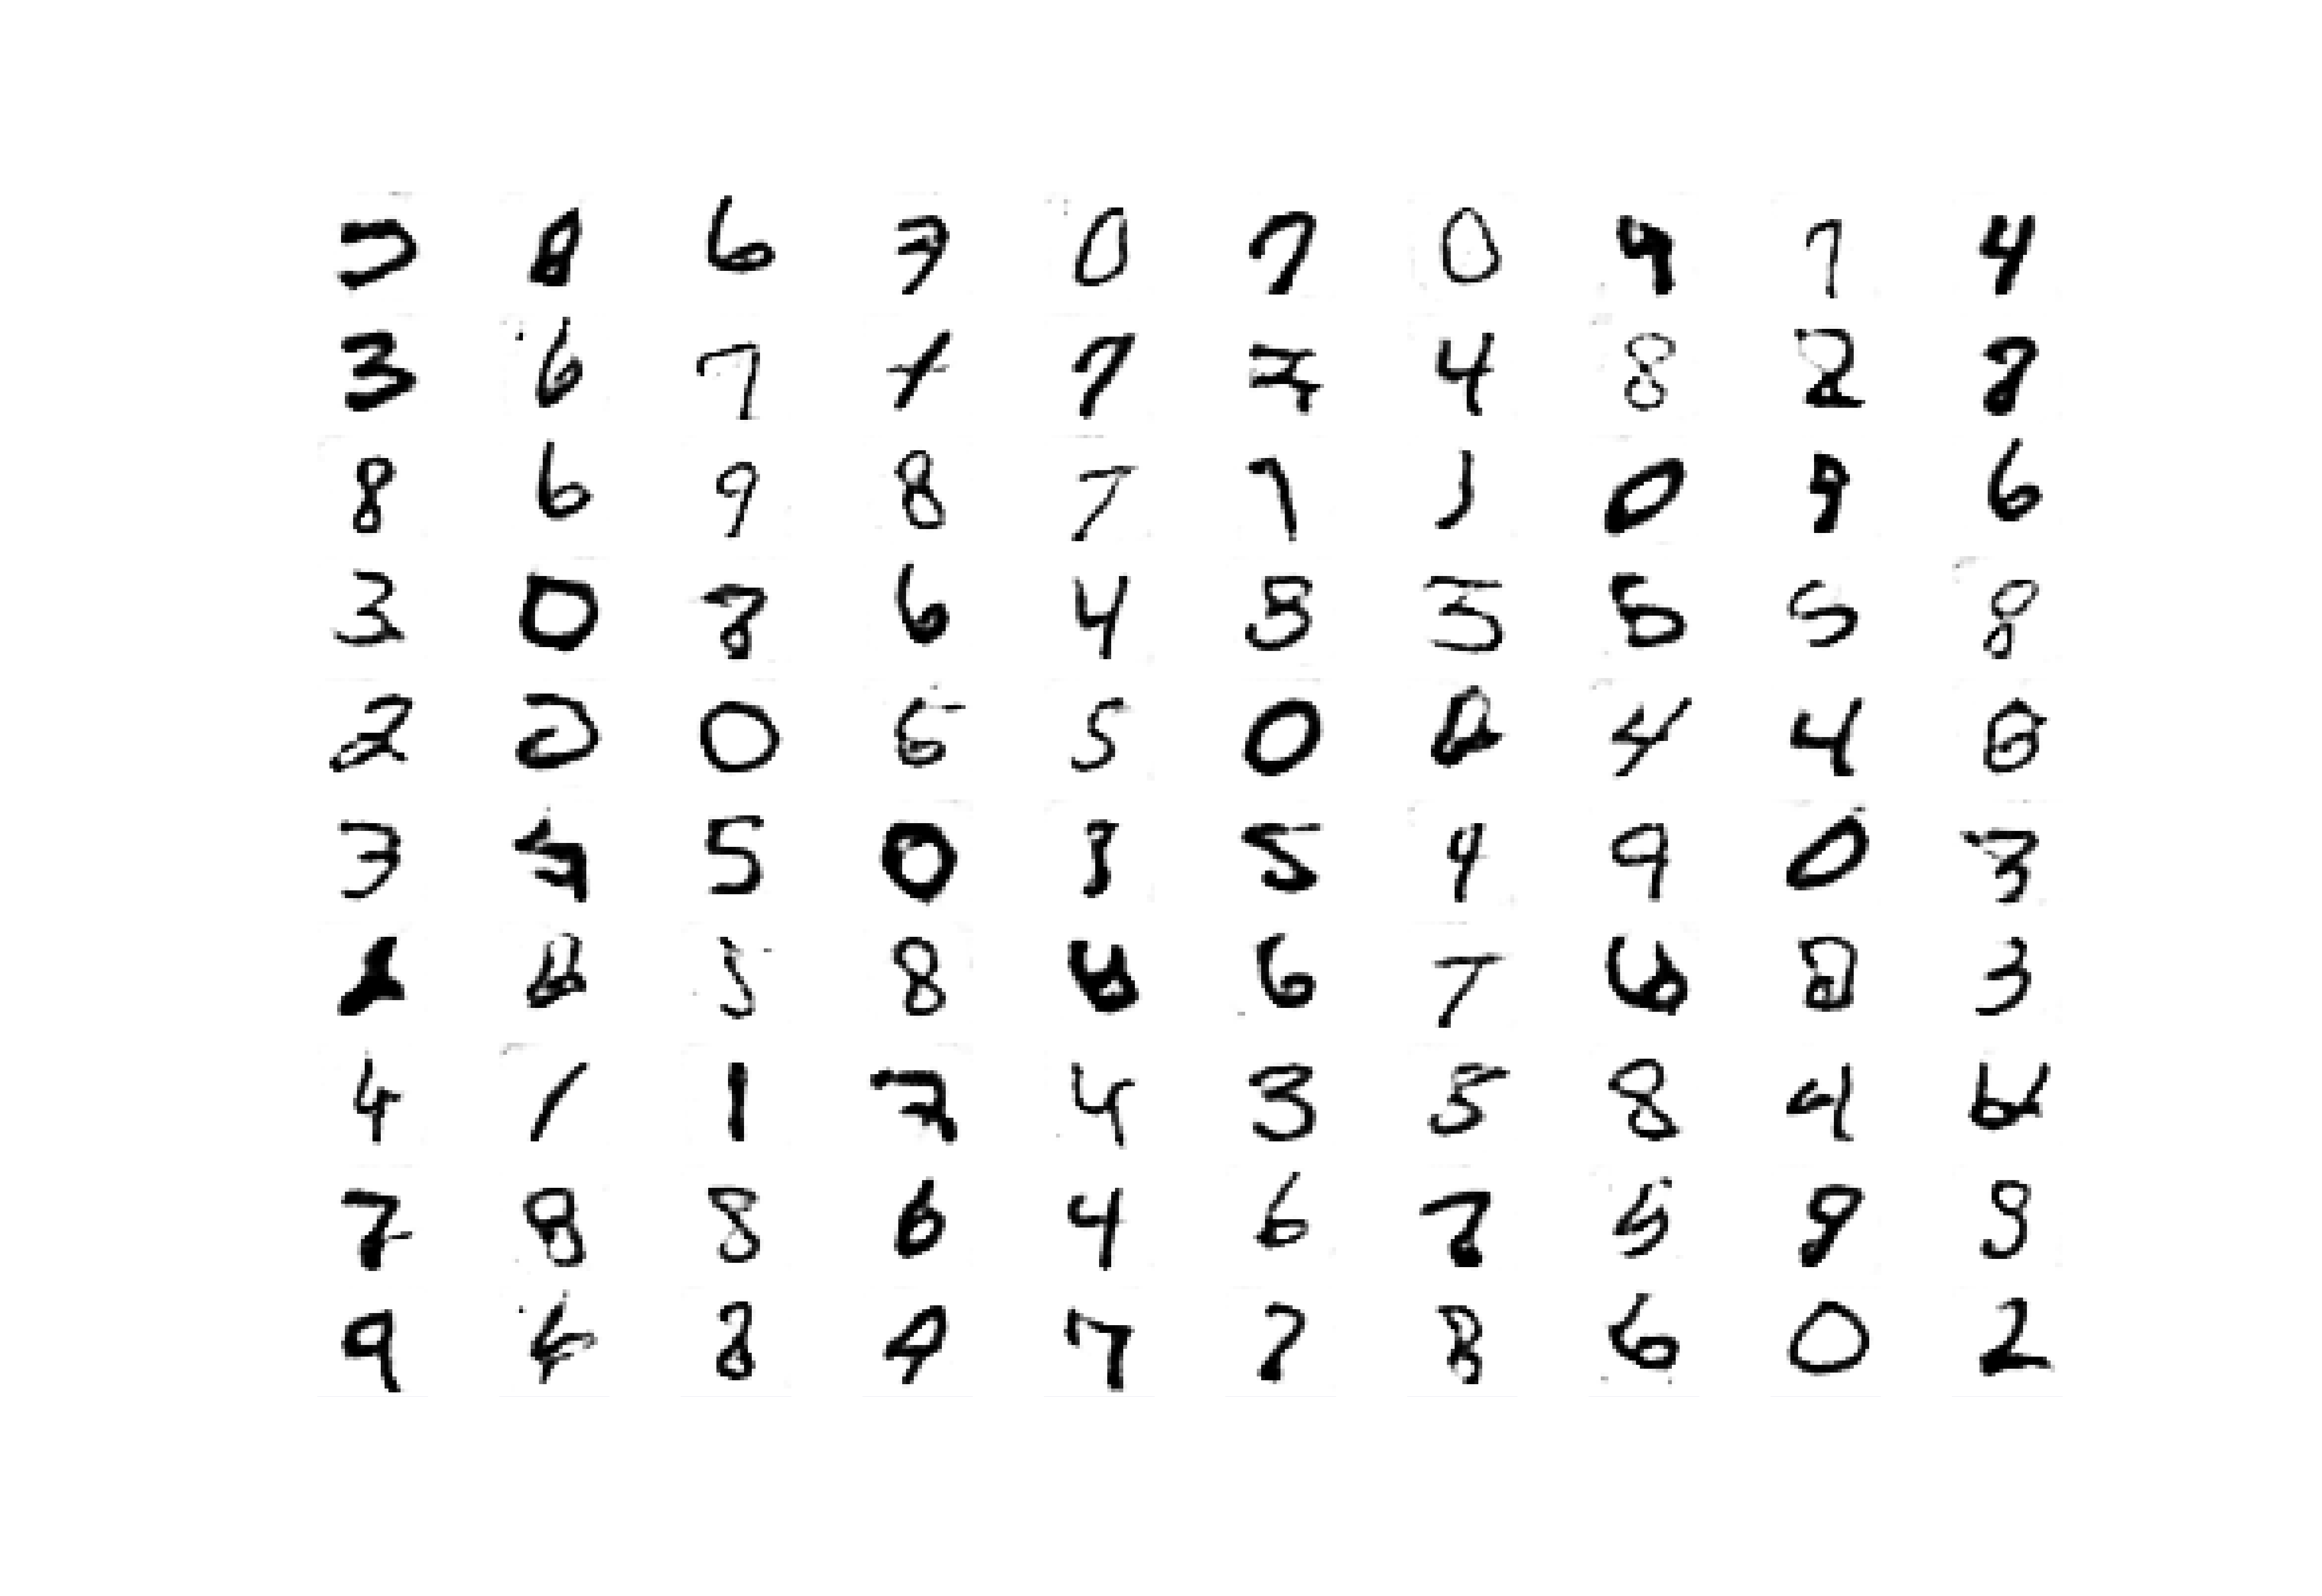 6 7 0 7 0 9 7 4
3 6 7 7 7 4 8 2 8
8 6 9 8 7 1 1 0 9 6
3 0 8 6 4 5 5 5 8
2 0 6 5 0 4 4
3 5 0 3 5 9 9 0 3
8 6 7 3
4 1 1 7 4 3 5 8 4
7 8 8 6 4 6 7 5 8 9
9 8 4 7 7 8 6 0 2